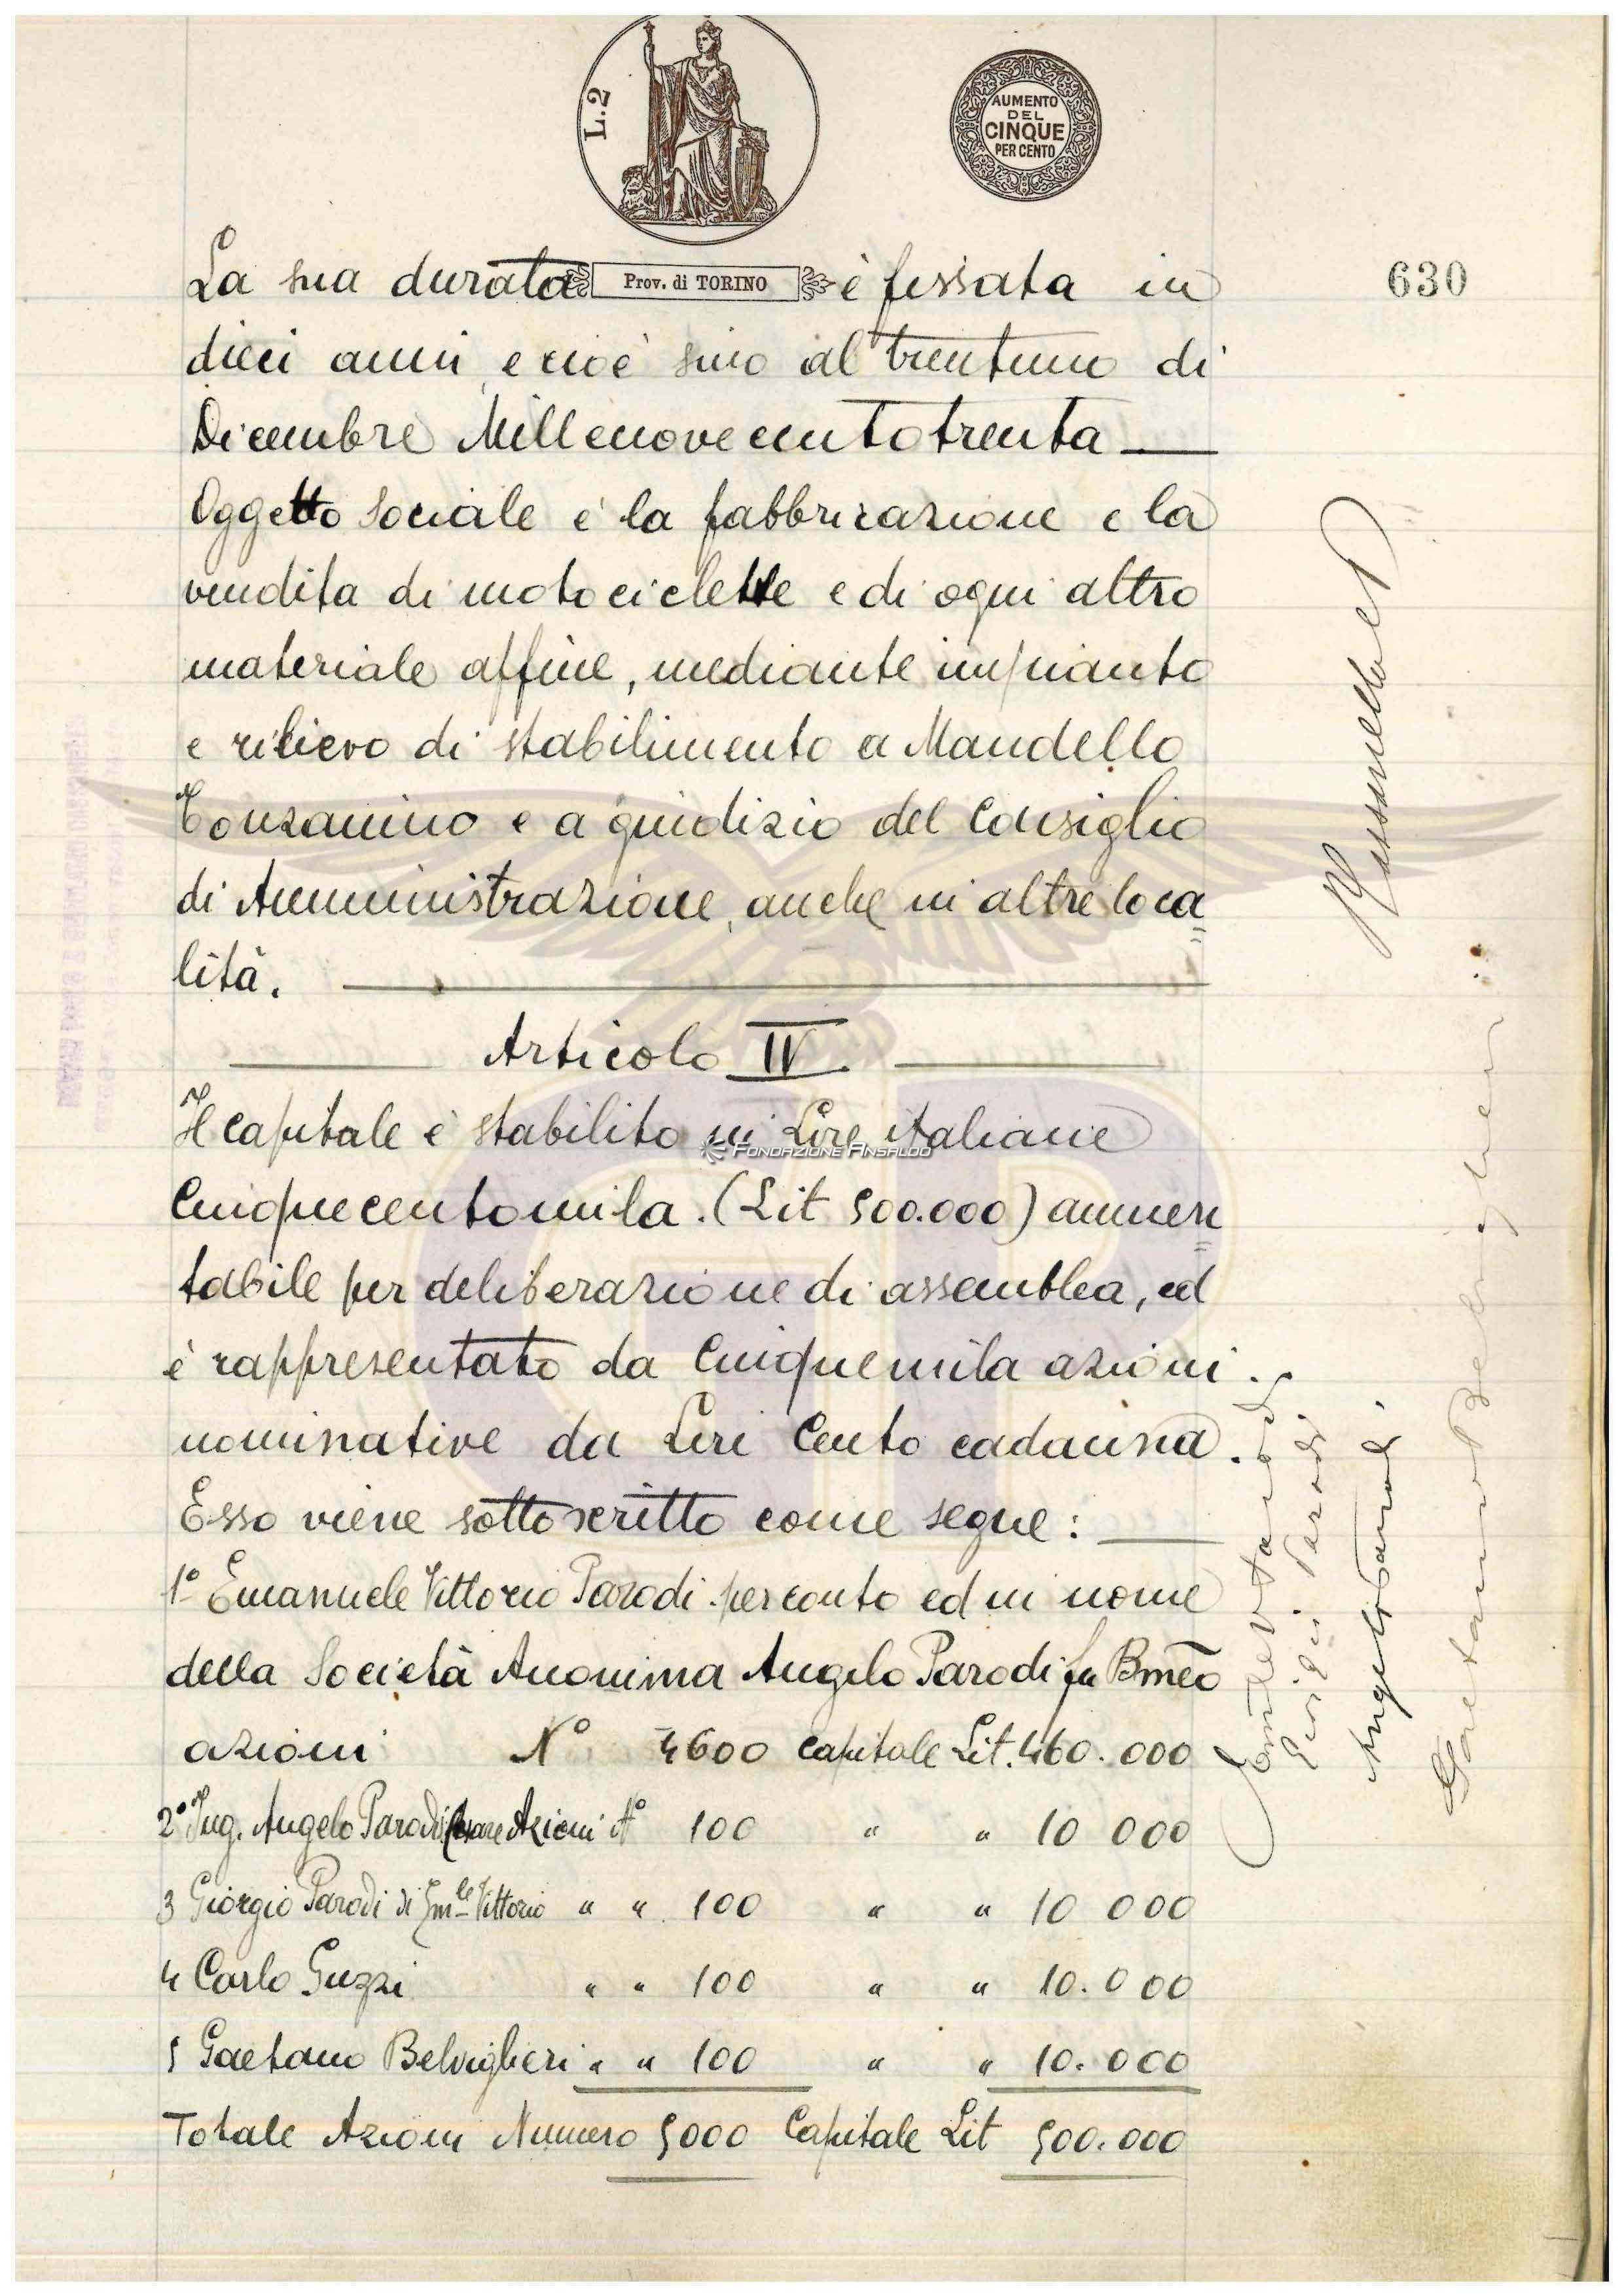 L.2
AUMENTO
DEL
CINQUE
PER CENTO
La sua durata Prov. di TORINO è fissata in
630
dieci anni, e cioè sino al trentuno di
Dicembre Millenovecentotrenta
Oggetto sociale è la fabbricazione e la
vendita di motociclette e di ogni altro
materiale affine, mediante impianto
e rilievo di stabilimento a Mandello
Tonzanino e a giudizio del Consiglio
di Amministrazione, anche in altre loca
lità.
Articolo IV.
Il capitale è stabilito in Lire italiane
FONDAZIONE ANSALDO
Cinquecentomila. (Lit 500.000) aumen
tabile per deliberazione di assemblea, ed
è rappresentato da Cinquemila azioni
nominative da Lire Cento cadauna.
Esso viene sottoscritto come segue:
1° Emanuele Vittorio Parodi per conto ed in nome
della Società Anonima Angelo Parodi fu Bmeo
azioni N° 4600 capitale Lit. 460.000
2° Ing. Angelo Parodi Azioni N° 100 " " 10 000
3 Giorgio Parodi di Em.le Vittorio " " 100 " " 10 000
4 Carlo Guzzi " " 100 " " 10.000
5 Gaetano Belviglieri " " 100 " " 10.000
Totale Azioni Numero 5000 Capitale Lit 500.000
GP
Em.le V. Parodi
Parodi
Angelo Parodi
Gaetano Belviglieri